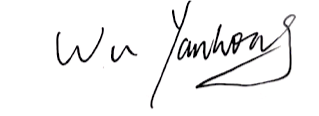 Wu Yanhong